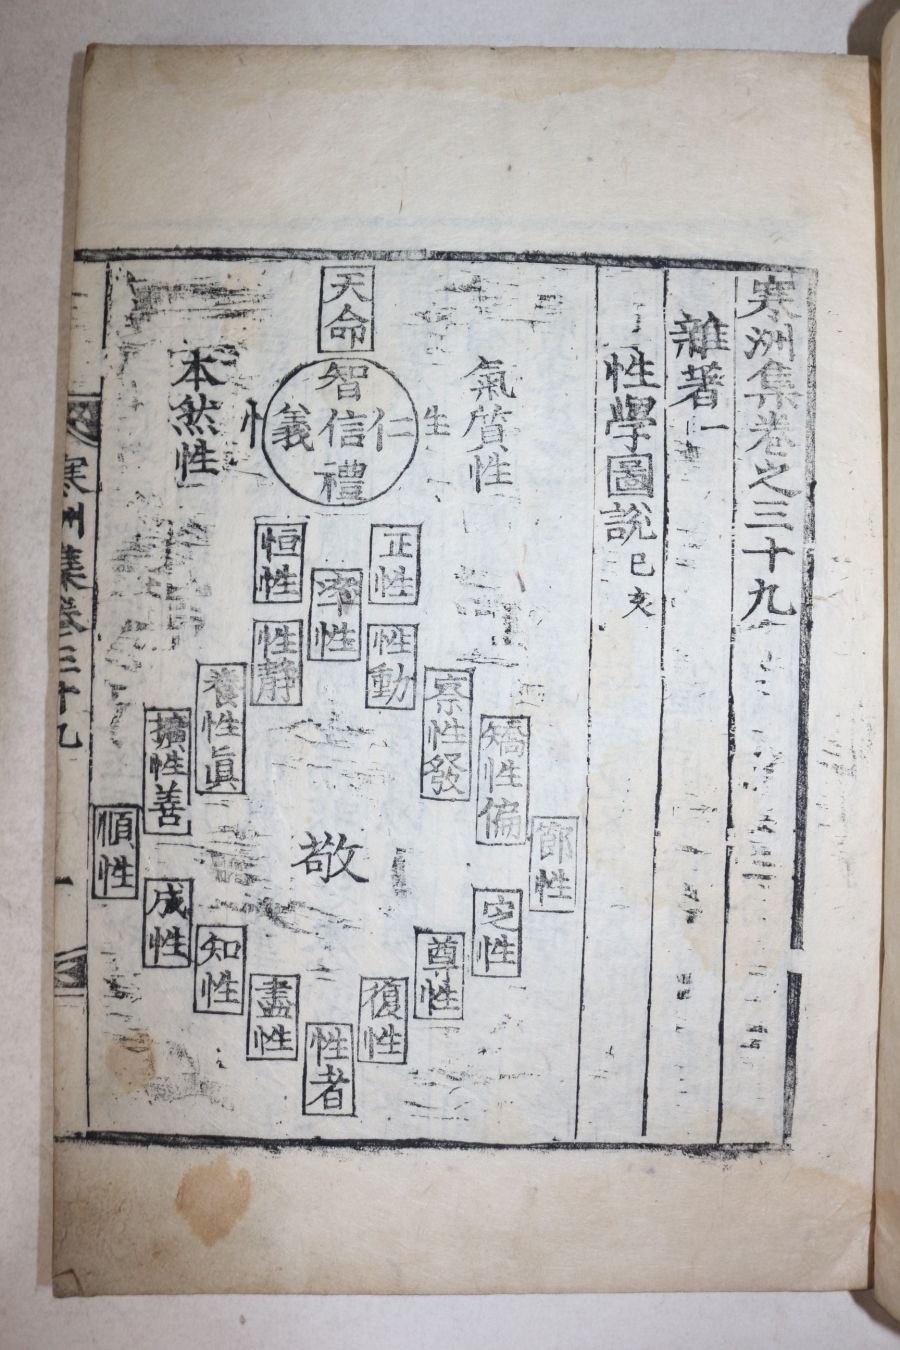 寒洲集卷之三十九
雜著一
性學圖說己亥
天命
氣質性
本然性
生
忄
智
仁信義
禮
正性
恒性
率性
性動
性靜
察性發
養性眞
矯性偏
擴性善
節性
順性
敬
定性
成性
尊性
知性
復性
盡性
性者
寒洲集卷三十九
一